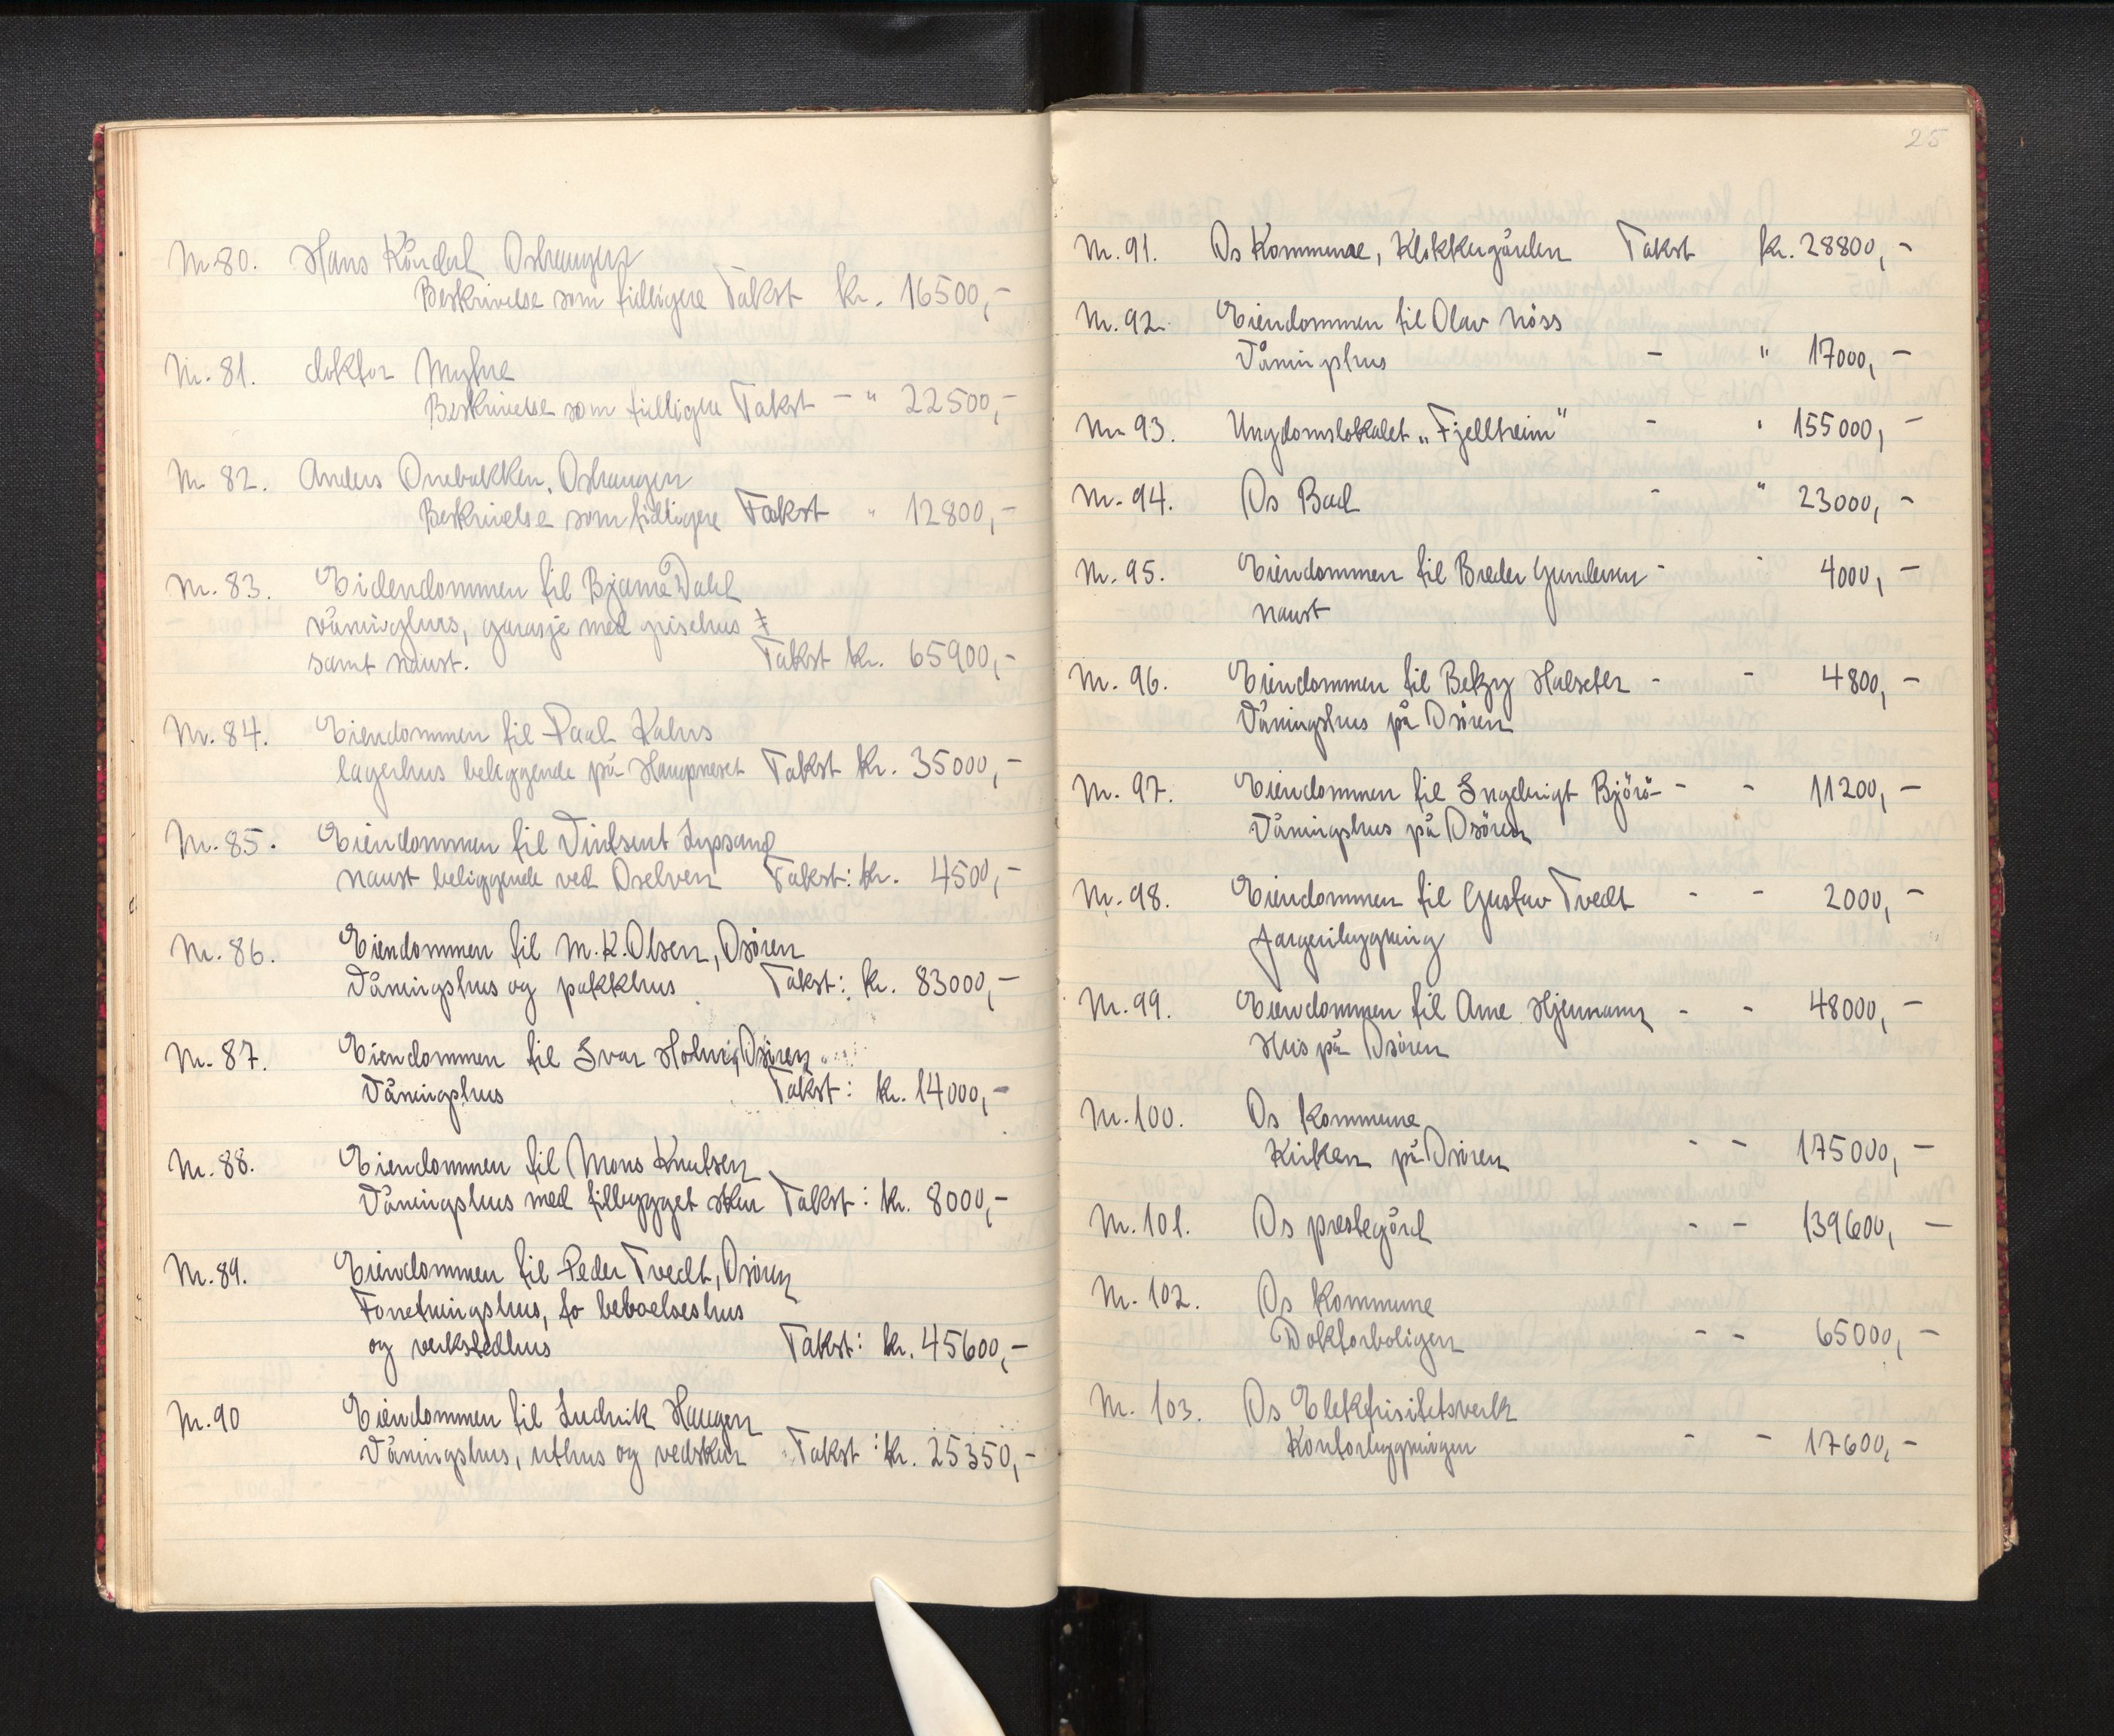 Nr. 80. Hans Köndal Oshaugen
Beskrivelse som tidligere Takst kr. 16500,-
Nr. 81. doktor Myhre
Beskrivelse som tidligere Takst - " 22500,-
Nr. 82. Anders Drebakken, Oshaugen
Beskrivelse som tidligere Takst " 12800,-
Nr. 83. Eidendommen til Bjarne Dahl
våningshus, garasje med grisehus
samt naust. Takst kr. 65900,-
Nr. 84. Eiendommen til Paul Kahrs
lagerhus beliggende på Haugneset Takst kr. 35000,-
Nr. 85. Eiendommen til Vintsent Lepsund
naust beliggende ved Oselven Takst: kr. 4500,-
Nr. 86. Eiendommen til M. K. Olsen, Osören
Våningshus og pakkhus Takst: kr. 83000,-
Nr. 87. Eiendommen til Ivar Holvik, Osören
Våningshus Takst: kr. 14000,-
Nr. 88. Eiendommen til Mons Knutsen
Våningshus med tilbygget skur Takst: kr. 8000,-
Nr. 89. Eiendommen til Peder Tvedt, Osören
Forretningshus, to beboelseshus
og verkstedhus Takst: kr. 45600,-
Nr. 90 Eiendommen til Ludvik Haugen
Våningshus, uthus og vedskur Takst: kr. 25350,-
25
Nr. 91. Os Kommune, Klokkergården Takst kr. 28800,-
Nr. 92. Eiendommen til Olav Nöss
Våningshus - " 17000,-
Nr. 93. Ungdomslokalet „Fjellheim" - " 155000,-
Nr. 94. Os Bad - " 23000,-
Nr. 95. Eiendommen til Brödr Gundersen - " 4000,-
naust
Nr. 96. Eiendommen til Betzy Halseter - - 4800,-
Våningshus på Osören
Nr. 97. Eiendommen til Ingebrigt Björö - - 11200,-
Våningshus på Osören
Nr. 98. Eiendommen til Gustav Tvedt - - 2000,-
fargeribygning
Nr. 99. Eiendommen til Arne Hjelmann - - 48000,-
Hus på Osören
Nr. 100. Os Kommune
Kirken på Osören - - 175000,-
Nr. 101. Os prestegård - - 139600,-
Nr. 102. Os Kommune
Doktorboligen - - 65000,-
Nr. 103. Os Elektrisitetsverk
Kontorbygningen - - 17600,-